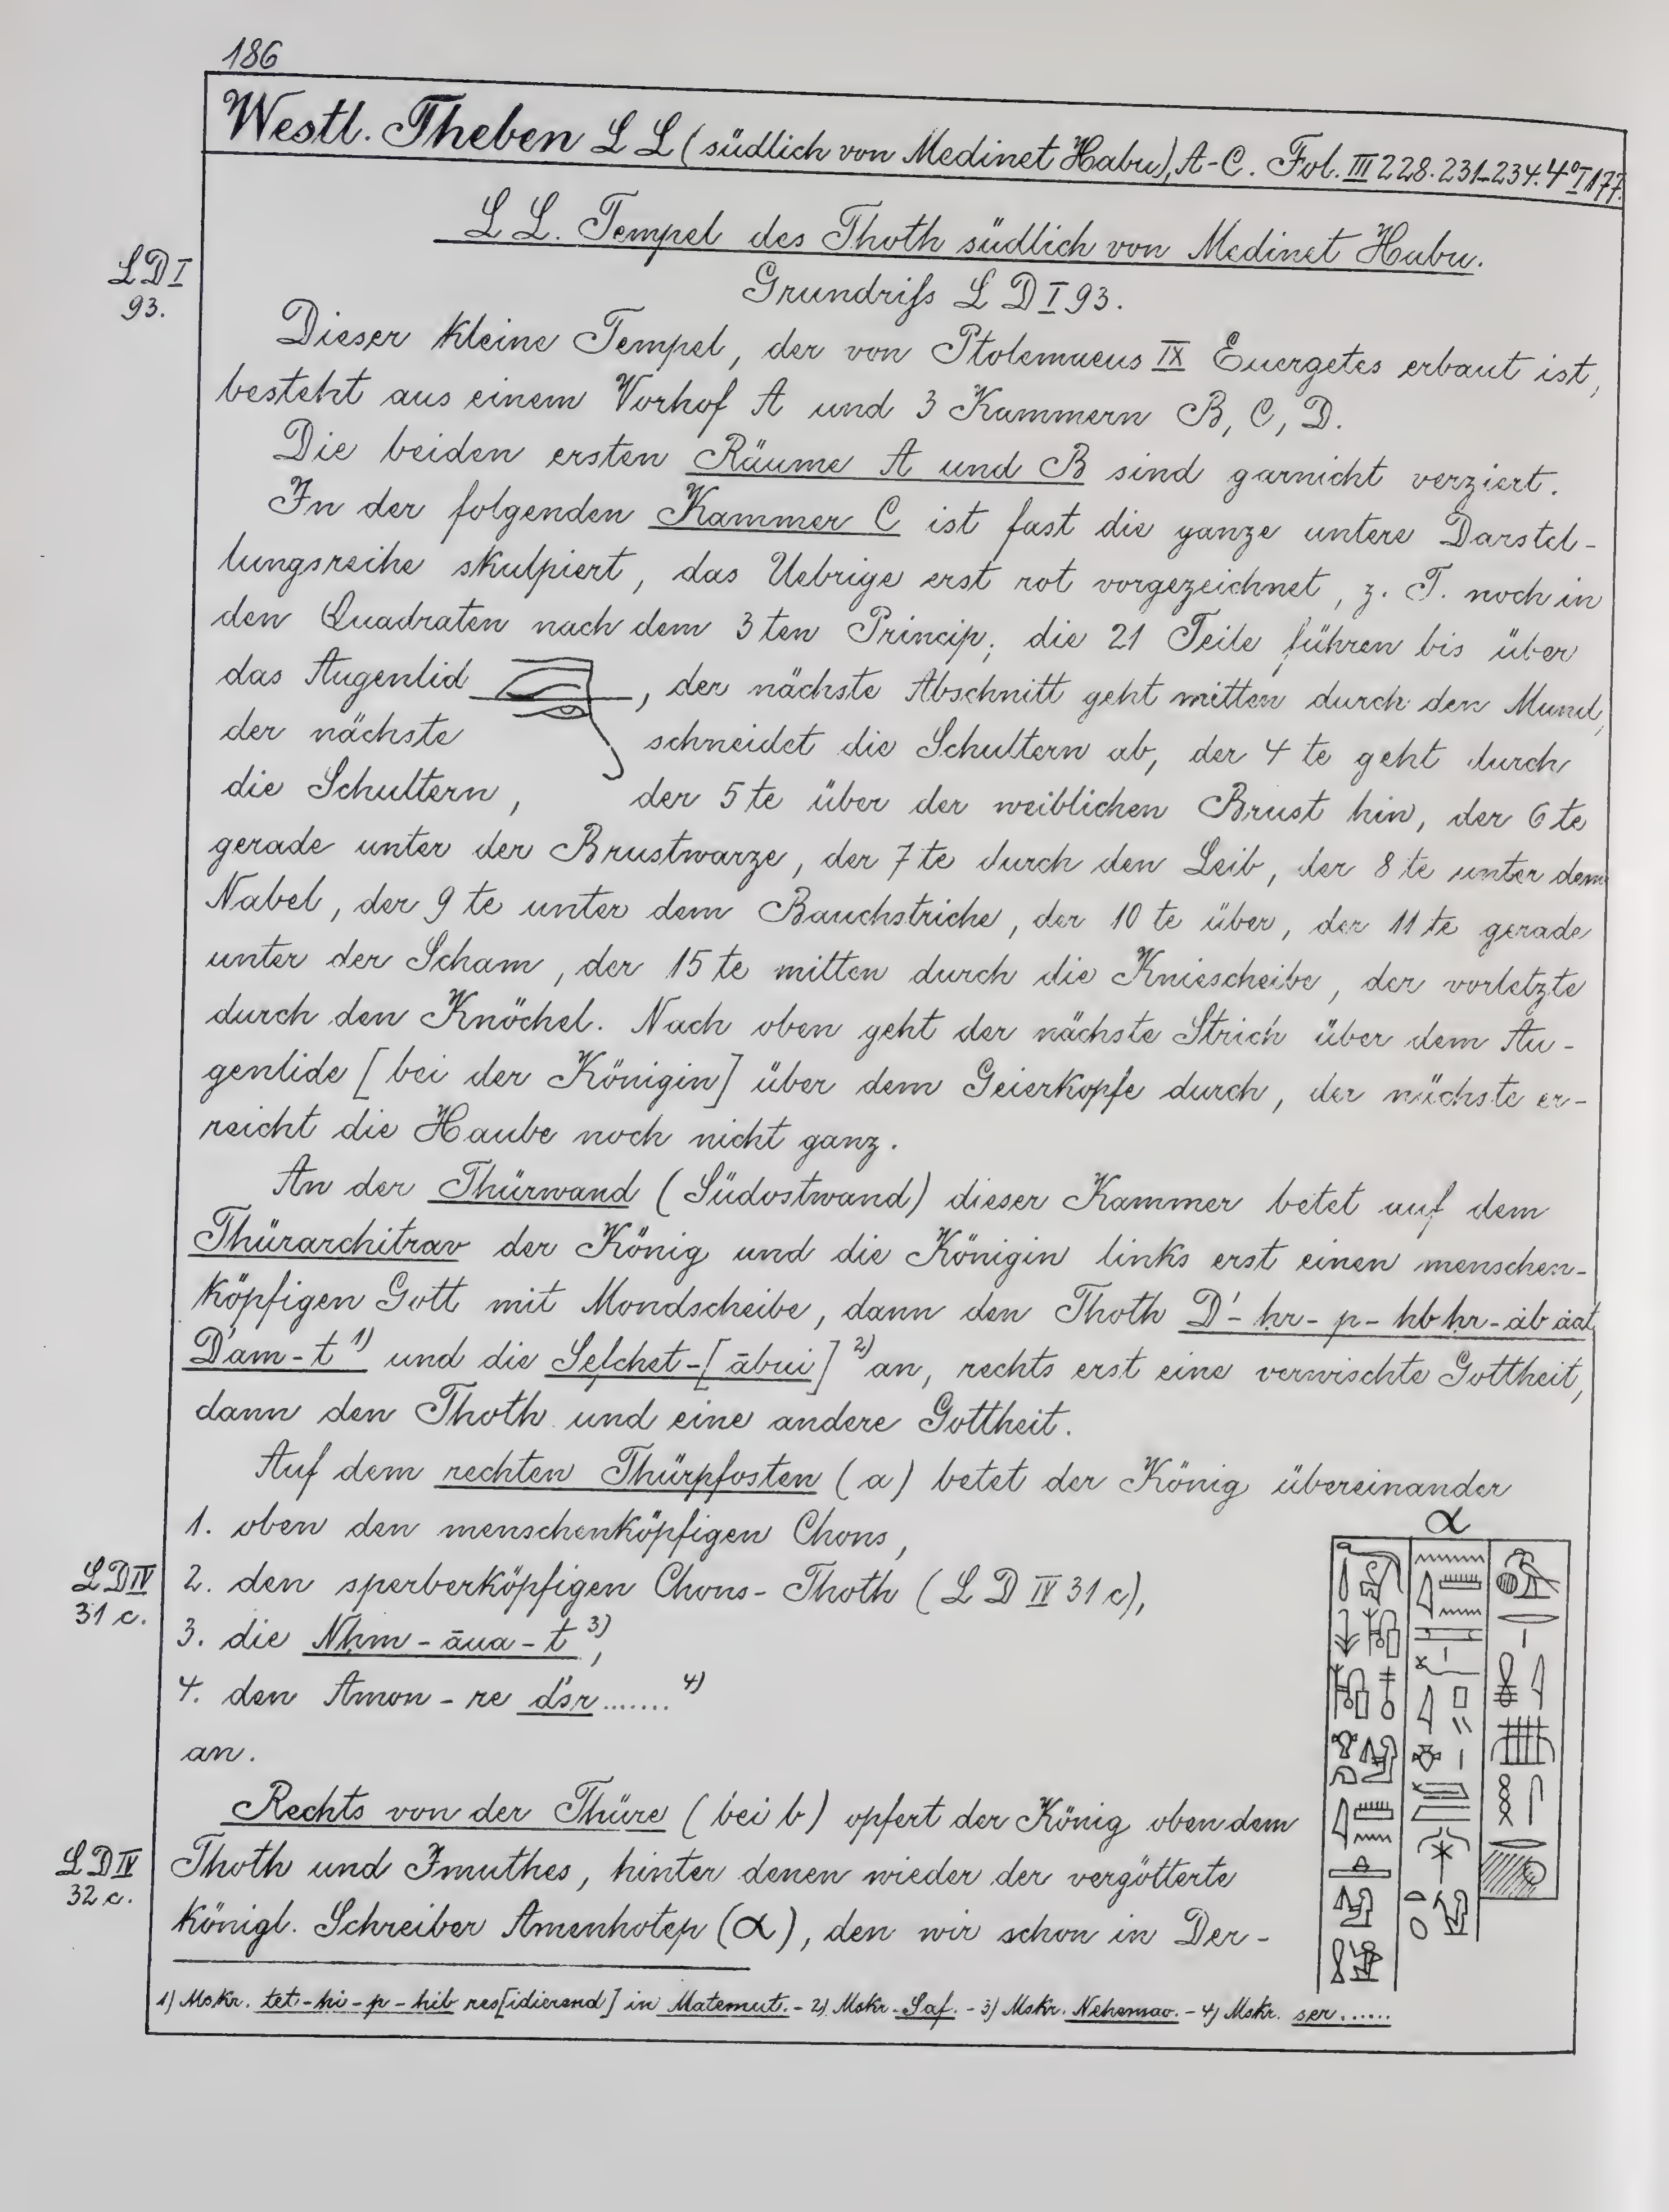 186
Westl. Theben L L (südlich von Medinet Habu), A-C. Fol. III 228. 231-234. 4° I 177.
L L. Tempel des Thoth südlich von Medinet Habu.
LD I
93.
Grundriſs L D I 93.
Dieser kleine Tempel, der von Ptolemaeus IX Euergetes erbaut ist,
besteht aus einem Vorhof A und 3 Kammern B, C, D.
Die beiden ersten Räume A und B sind garnicht verziert.
In der folgenden Kammer C ist fast die ganze untere Darstel-
lungsreihe skulpiert, das Uebrige erst rot vorgezeichnet, z. T. noch in
den Quadraten nach dem 3 ten Princip; die 21 Teile führen bis über
das Augenlid , der nächste Abschnitt geht mitten durch den Mund,
der nächste schneidet die Schultern ab, der 4 te geht durch
die Schultern, der 5 te über der weiblichen Brust hin, der 6 te
gerade unter der Brustwarze, der 7 te durch den Leib, der 8 te unter dem
Nabel, der 9 te unter dem Bauchstriche, der 10 te über, der 11 te gerade
unter der Scham, der 15 te mitten durch die Kniescheibe, der vorletzte
durch den Knöchel. Nach oben geht der nächste Strich über dem Au-
genlide [bei der Königin] über dem Geierkopfe durch, der nächste er-
reicht die Haube noch nicht ganz.
An der Thürwand (Südostwand) dieser Kammer betet auf dem
Thürarchitrav der König und die Königin links erst einen menschen-
köpfigen Gott mit Mondscheibe, dann den Thoth D́-ḥr-p-hb ḥr-ab áat
D́am-t 1) und die Sefchet-[ābui] 2) an, rechts erst eine verwischte Gottheit,
dann den Thoth und eine andere Gottheit.
Auf dem rechten Thürpfosten (a) betet der König übereinander
1. oben den menschenköpfigen Chons,
LD IV
31 c.
2. den sperberköpfigen Chons-Thoth (L D IV 31 c),
3. die Nḥm-āua-t 3),
4. den Amon-re d́sr ....... 4)
an.
α
Rechts von der Thüre (bei b) opfert der König oben dem
LD IV
32 c.
Thoth und Imuthes, hinter denen wieder der vergötterte
königl. Schreiber Amenhotep (α), den wir schon in Der-
1) Mskr. tet-hi-p-hib res[idierend] in Matemut. - 2) Mskr. Saf. - 3) Mskr. Nehemao. - 4) Mskr. ser ......